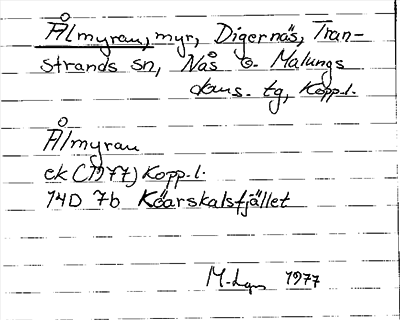 Ålmyran, myr, Digernäs, Tran-
strands sn, Nås o. Malungs
doms. tg, Kopp.l.
Ålmyran
ek (1977) Kopp.l.
14D 7b Köarskalsfjället
1977